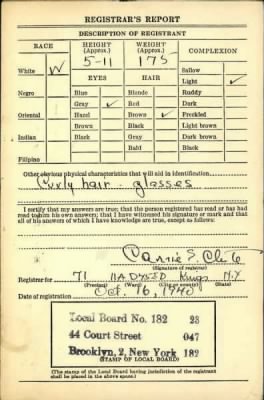 REGISTRAR'S REPORT
DESCRIPTION OF REGISTRANT
RACE
HEIGHT
(Approx.)
WEIGHT
(Approx.)
COMPLEXION
5-11
175
White ✓
Sallow
EYES
HAIR
Light ✓
Negro
Blue
Blonde
Ruddy
Gray ✓
Red
Dark
Oriental
Hazel
Brown ✓
Freckled
Brown
Black
Light brown
Indian
Black
Gray
Dark brown
Bald
Black
Filipino
Other obvious physical characteristics that will aid in identification
Curly hair - glasses
I certify that my answers are true; that the person registered has read or has had
read to him his own answers; that I have witnessed his signature or mark and that
all of his answers of which I have knowledge are true, except as follows:
Carrie S.
(Signature of registrar)
Registrar for 71 Kings N.Y
(Precinct) (Ward) (City or county) (State)
Date of registration Oct. 16, 1940
Local Board No. 182 23
44 Court Street 047
Brooklyn, 2, New York 182
(STAMP OF LOCAL BOARD)
(The stamp of the Local Board having jurisdiction of the registrant
shall be placed in the above space.)